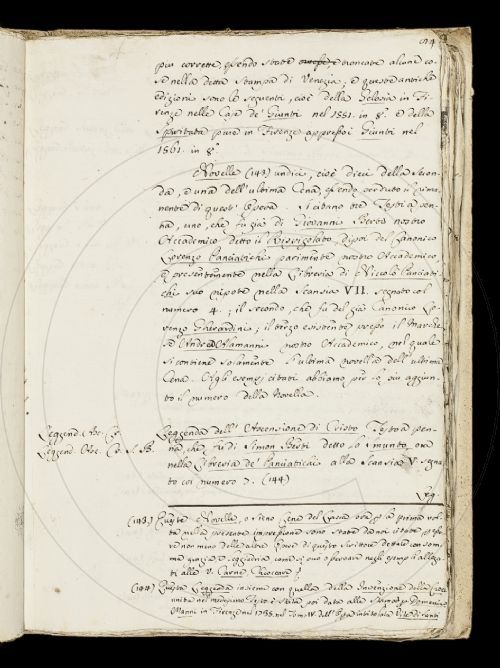 più corrette, essendo state troncate alcune co-
se nella detta Stampa di Venezia, e queste antiche
edizioni sono le seguenti, cioè della Gelosia in Fi-
renze nelle Case de' Giunti nel 1551. in 8°. e della
Spiritata pure in Firenze appresso i Giunti nel
1561. in 8°.
Novelle (143) undici, cioè dieci della Secon-
da, e una dell'ultima Cena, essendo perduto il rima-
nente di quest'Opera. Si citano tre Testi a pen-
na, uno, che fu già di Giovanni Berti nostro
Accademico detto il, dipoi del Canonico
Lorenzo Panciatichi parimente nostro Accademico,
e presentemente nella Libreria di Niccolò Panciati-
chi suo nipote nella Scansia VII. segnato col
numero 4.; il secondo, che fu del già Canonico Lo-
renzo Gherardini; il terzo esistente presso il Marche-
se Andrea Alamanni nostro Accademico, nel quale
si contiene solamente l'ultima novella dell'ultima
Cena. Agli esempj citati abbiamo per lo più aggiun-
to il numero della Novella.
Leggend. Asc. Cr.
Leggend. Asc. Cr. S. B.
Leggenda dell'Ascensione di Cristo Testo a pen-
na, che fu di Simon Berti detto lo Smunto, ora
nella Libreria de' Panciatichi alla Scansia V. segna-
to col numero 7. (144)
Leg
(143) Queste Novelle, o sieno Cene del Lasca ora per la prima vol-
ta nella presente impressione sono state da noi citate per esse-
re non meno delle altre Opere di questo Scrittore dettate con som-
ma grazia e leggiadria come si può osservare negli esempj allega-
ti alle V. Carne
(144) Questa Leggenda insieme con quella della Invenzione della Croce
unita nel medesimo Testo è stata poi data alle Stampe da Domenico
Manni in Firenze nel 1735. nel Tom. IV. dell'Opera intitolata Vite di Santi